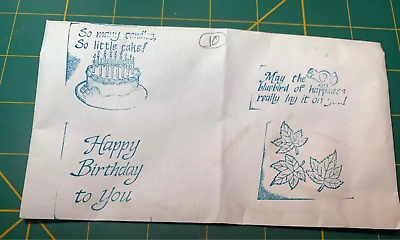 So many candles,
So little cake!
10
Happy
Birthday
to You
May the
bluebird of happiness
really lay it on you!